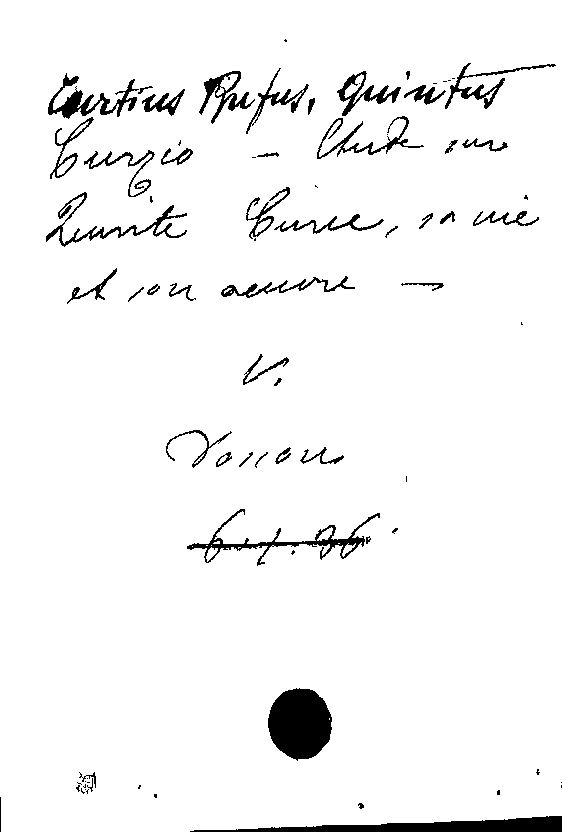 Curtius Rufus, Quintus
Curzio — Etude sur
Quinte Curce, sa vie
et son oeuvre —
V.
Dosson